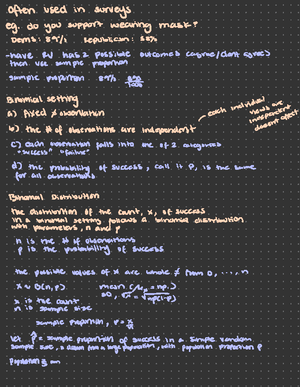 Often used in surveys
eg. do you support wearing mask?
Dems: 89% republican: 58%
-have RV has 2 possible outcomes (agree/dont agree)
then use sample proportion
sample proportion 89%
Binomial setting
a) Fixed # observation
b) the # of observations are independent
each individual
views are
independent
doesnt affect
c) each observation falls into one of 2 categories
"success" "failure"
d) the probability of success, call it P, is the same
for all observations
Binomial Distribution
the distribution of the count, x, of success
in a binomial setting follows a binomial distribution
with parameters, n and p
n is the # of observations
p is the probability of success
the possible values of x are whole # from 0, ..., n
x ~ B(n,p) mean (μx = np)
SD, σx = √np(1-p)
x is the count
n is sample size
sample proportion, p̂ = x/n
let p̂ = sample proportion of success in a simple random
sample size, n drawn from a large population, with population proportion p